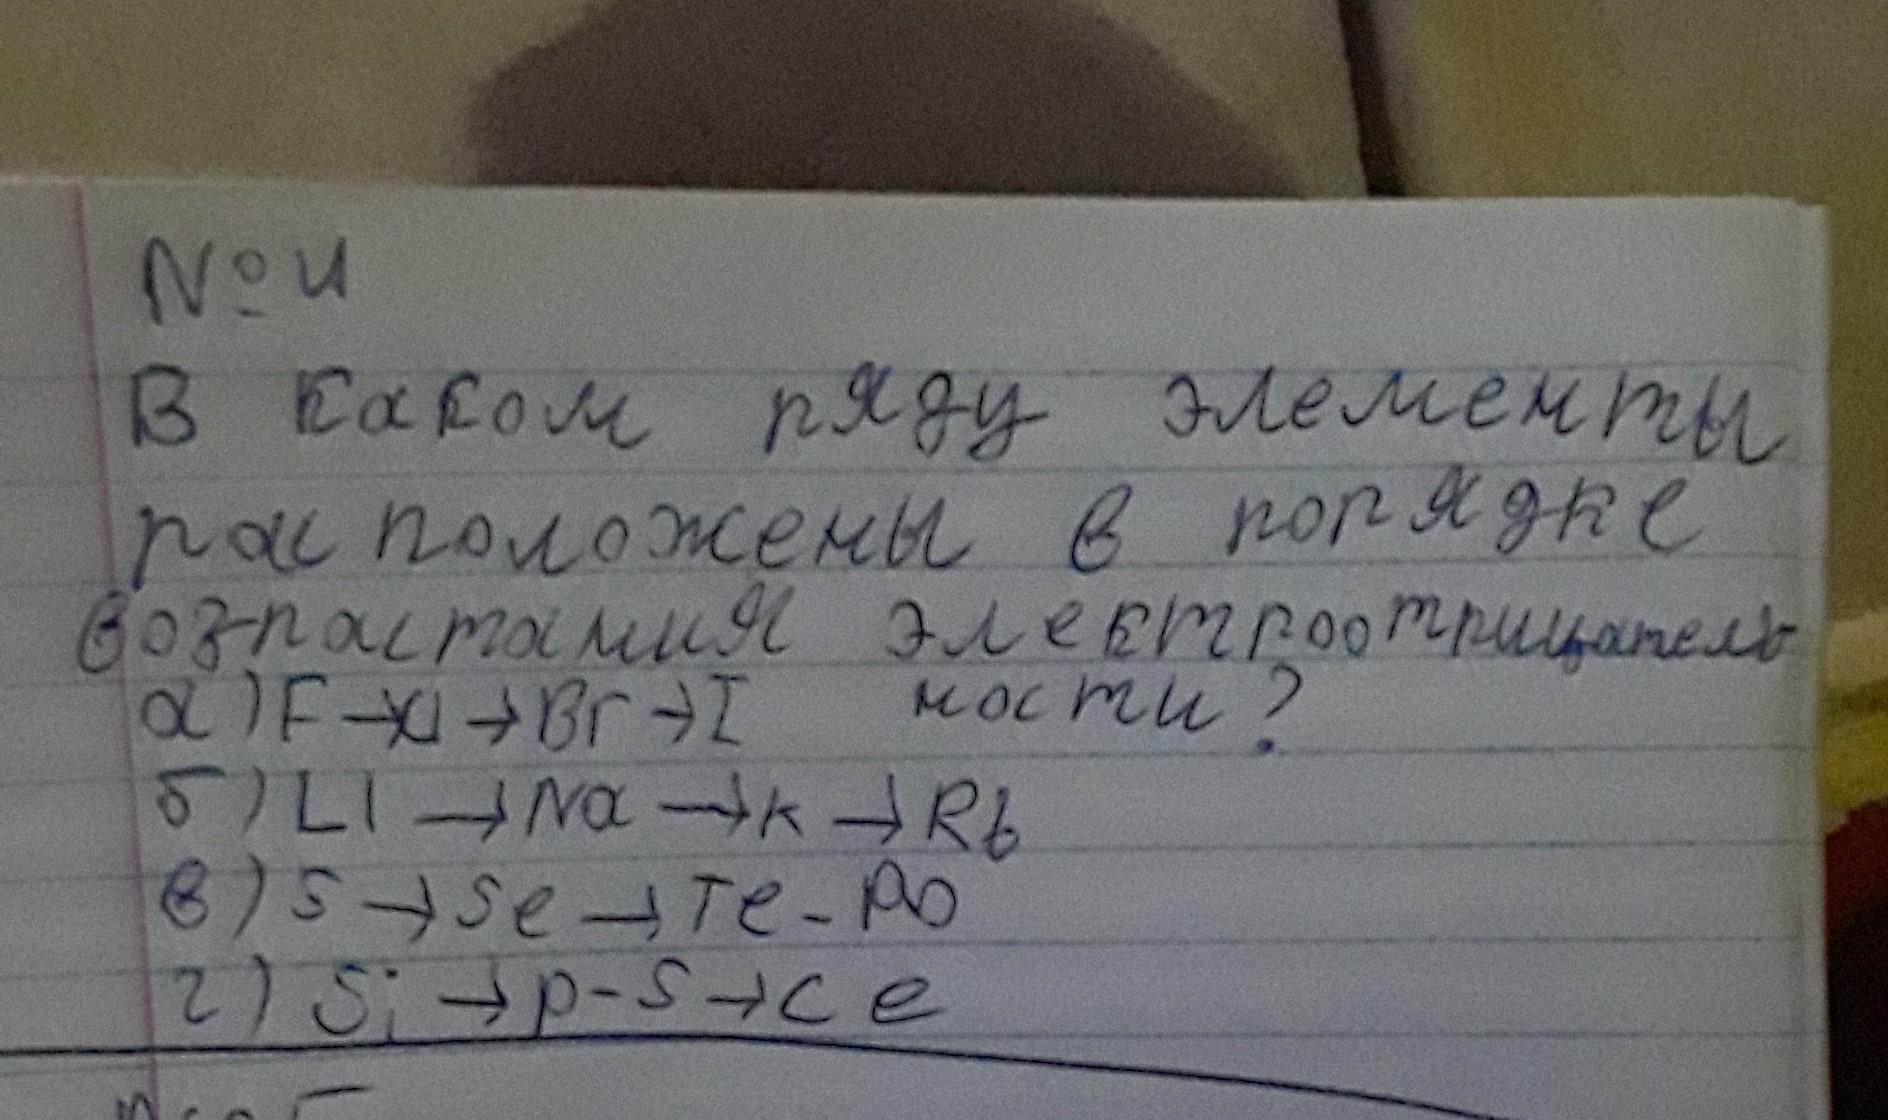 № 4
В каком ряду элементы
расположены в порядке
возрастания электроотрицатель
а) F → Cl → Br → I ности?
б) LI → Na → K → Rb
в) S → Se → Te - Po
г) Si → P - S → Ce